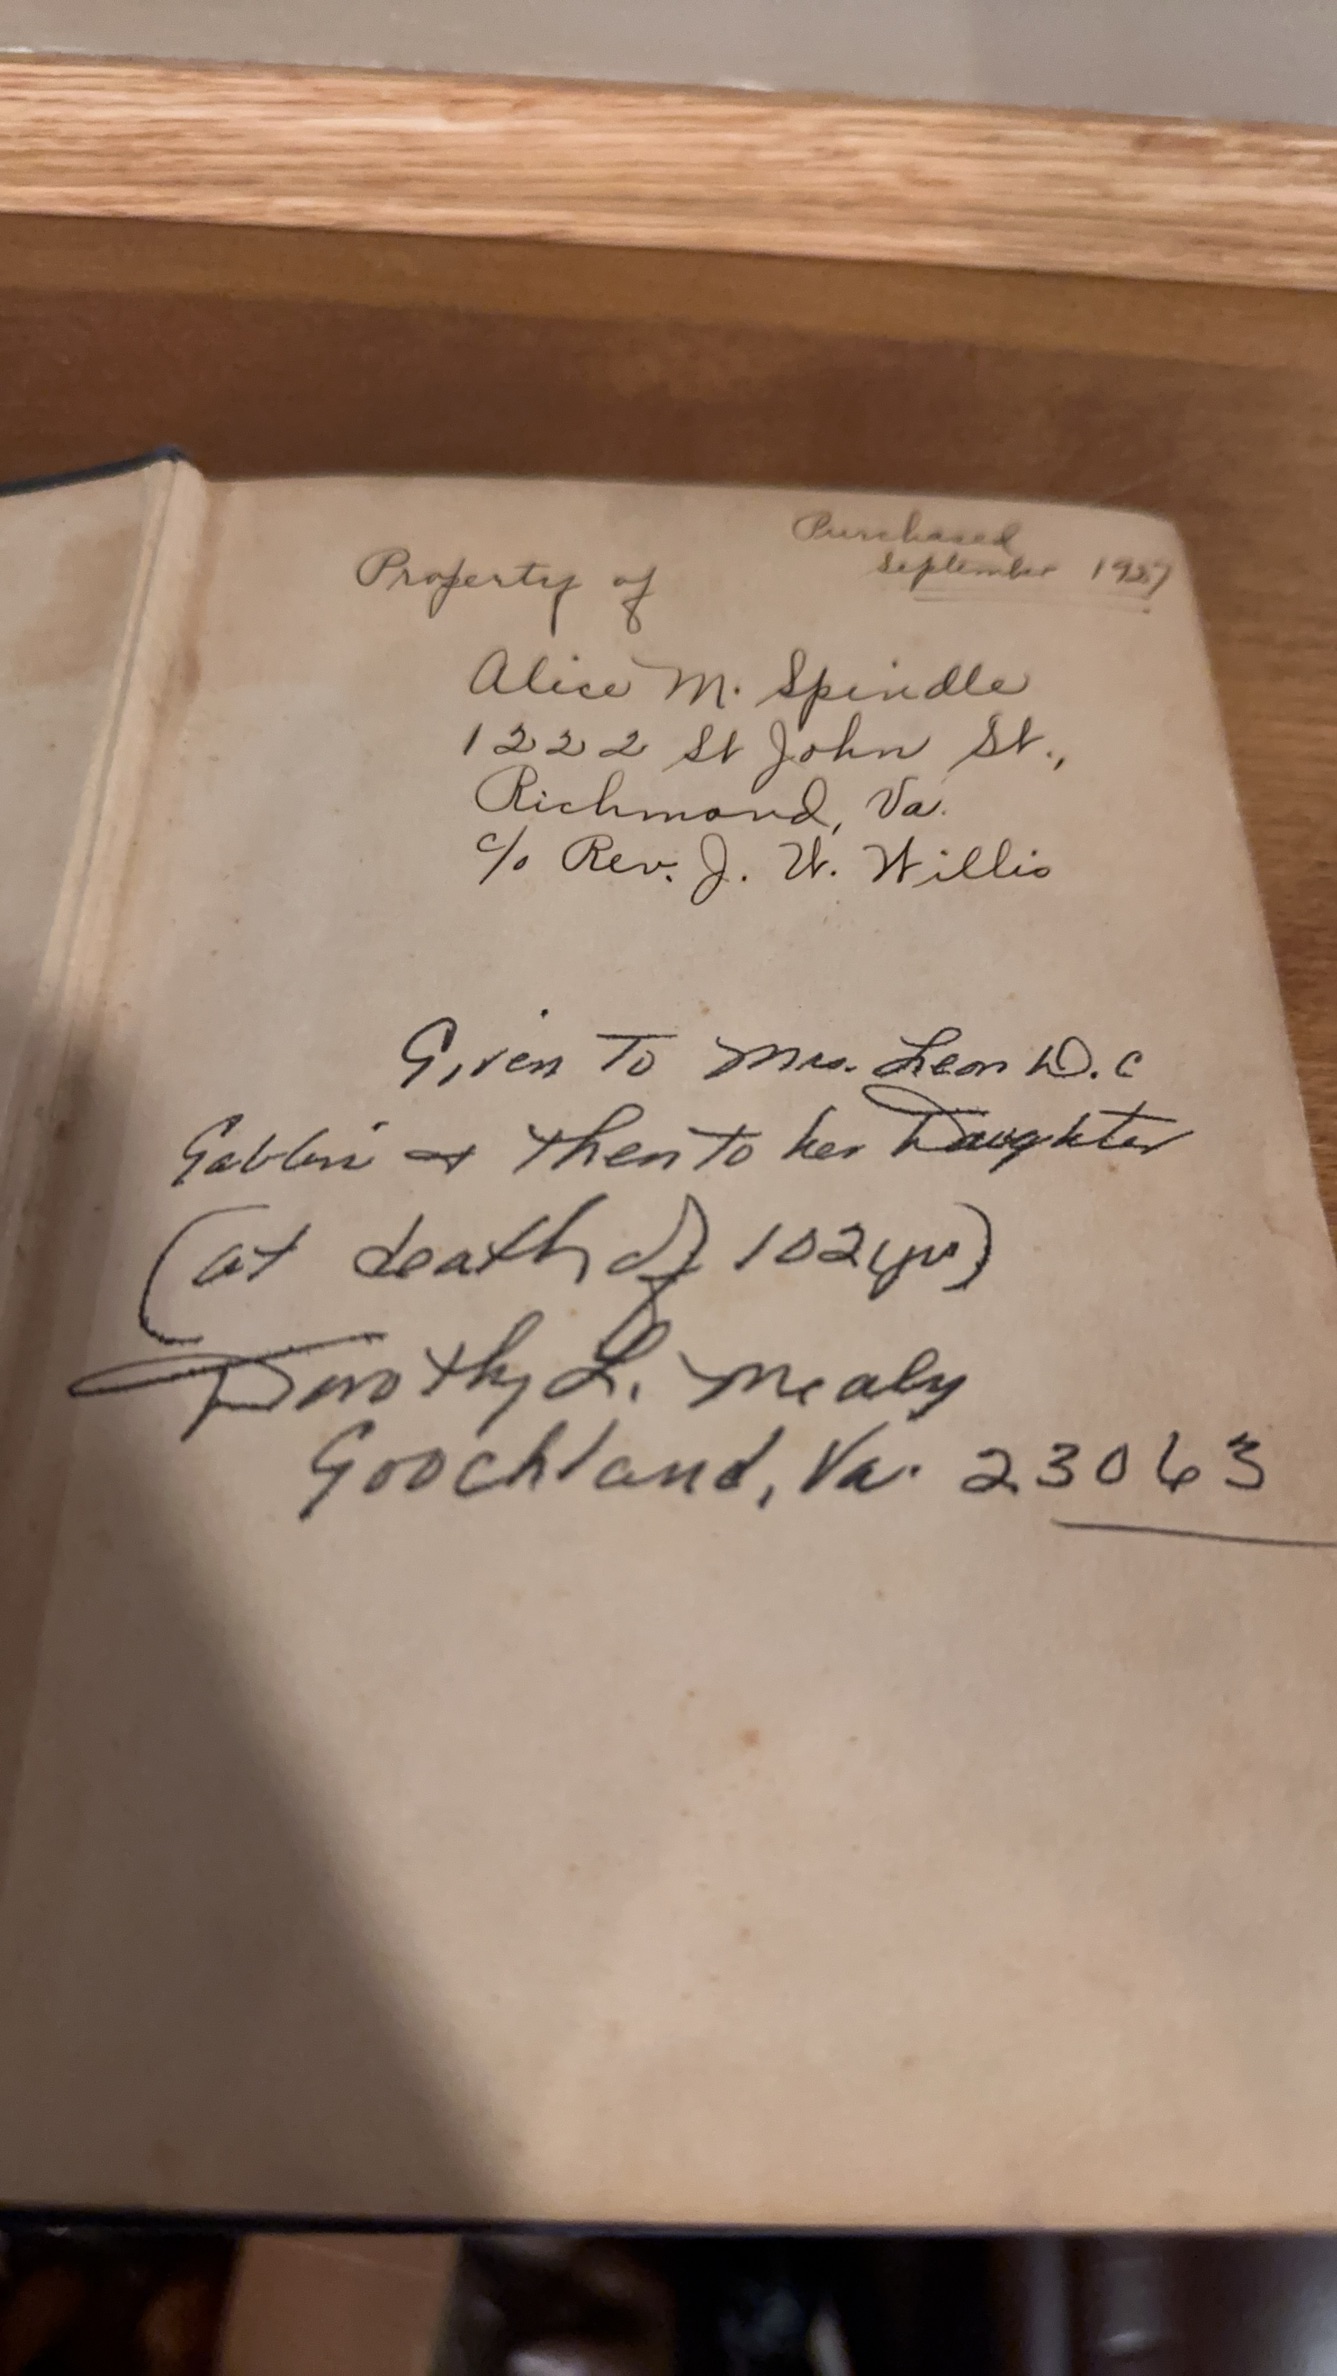 Purchased
September 1927
Property of
Alice M. Spindle
1222 St John St.,
Richmond, Va.
c/o Rev. J. W. Willis
Given To Mrs. Leon D. C
& then to her Daughter
(at death of 102 yrs)
Dorothy L. Mealy
Goochland, Va. 23063